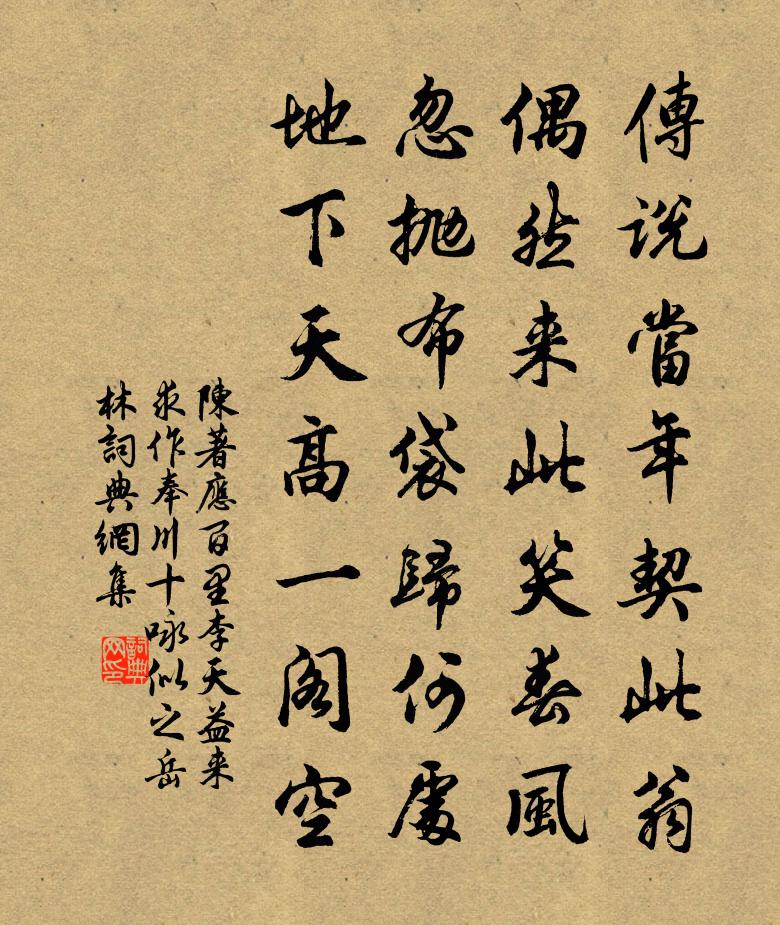 傳說當年契此翁
偶然来此笑春風
忽拋布袋歸何處
地下天高一阁空
陳著應百里李天益来
求作奉川十咏似之岳
林詞典網集
詞典
网印